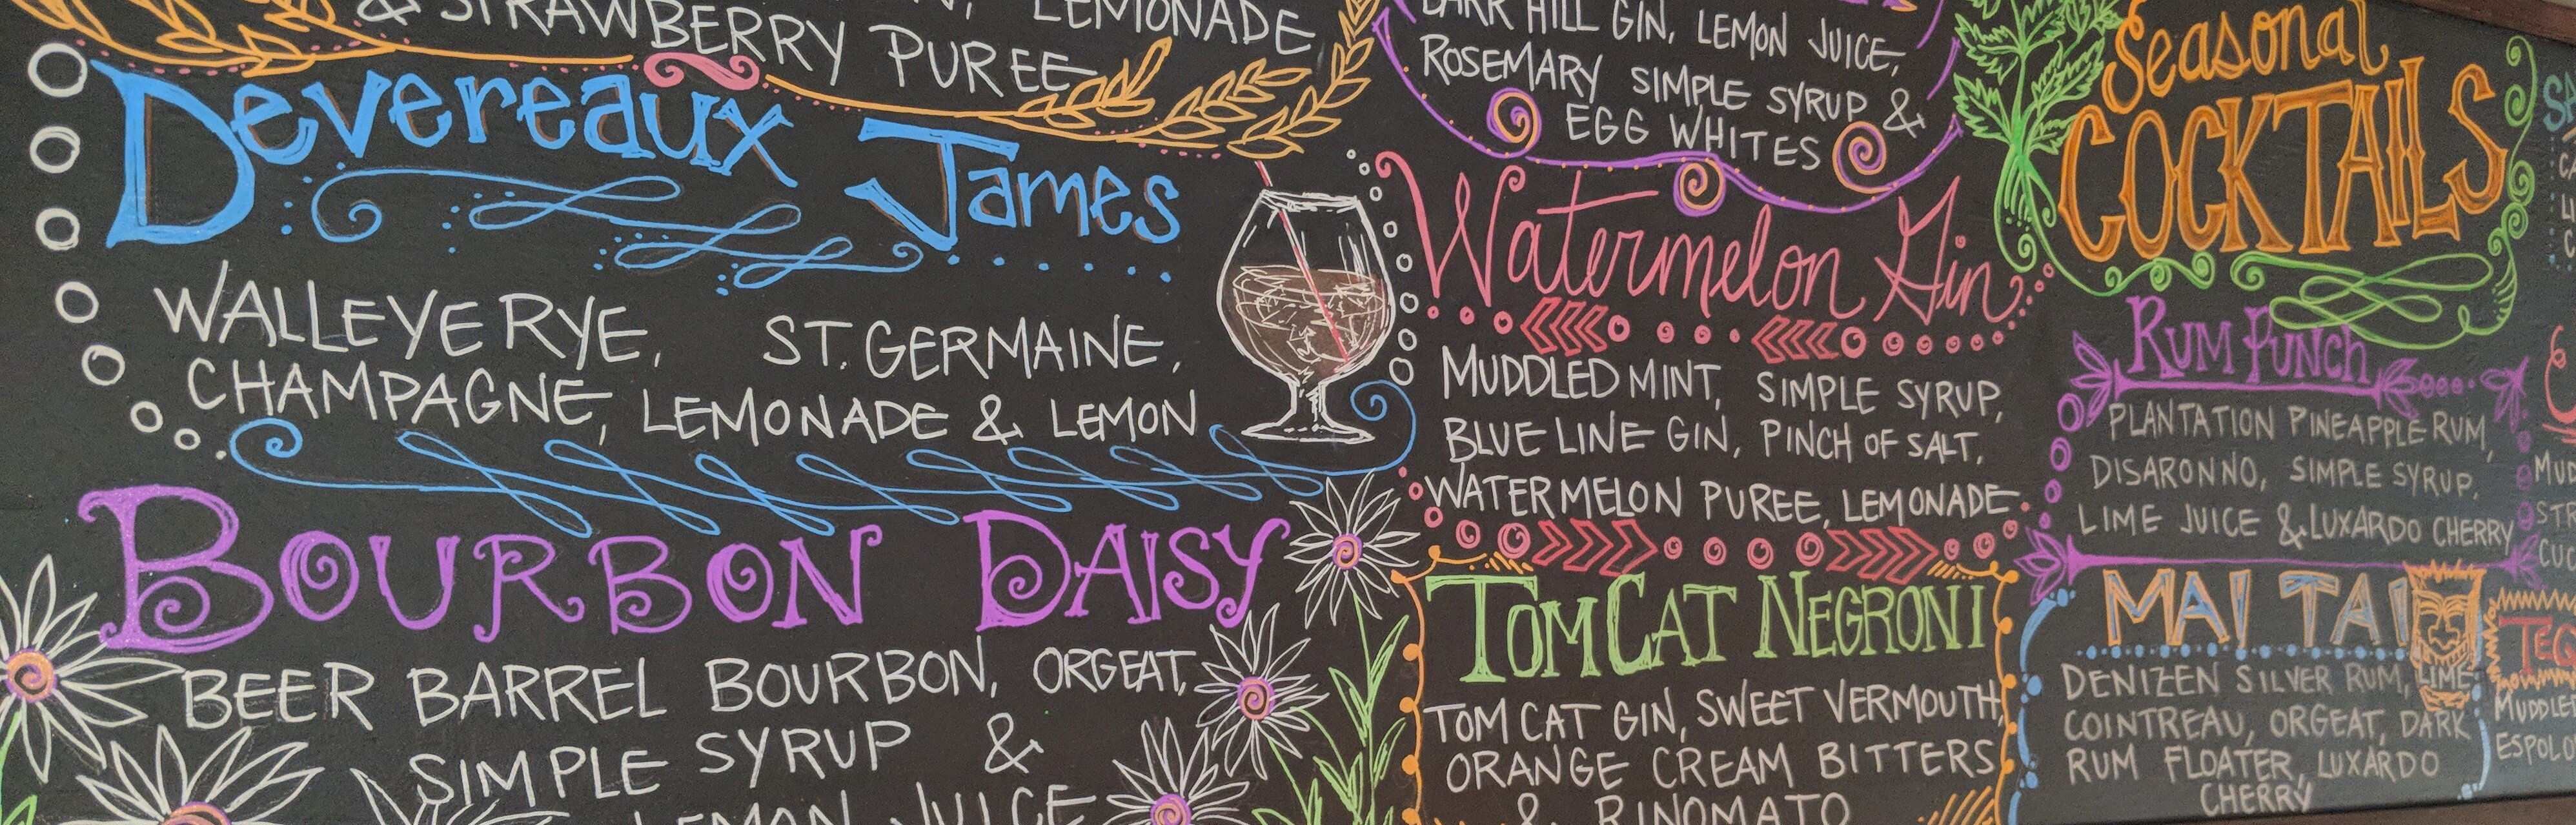 & STRAWBERRY PUREE
LEMONADE
Devereaux James
WALLEYE RYE, ST. GERMAINE,
CHAMPAGNE, LEMONADE & LEMON
BOURBON DAISY
BEER BARREL BOURBON, ORGEAT,
SIMPLE SYRUP &
LEMON JUICE
HILL GIN, LEMON JUICE,
ROSEMARY SIMPLE SYRUP &
EGG WHITES
Watermelon Gin
MUDDLED MINT, SIMPLE SYRUP,
BLUE LINE GIN, PINCH OF SALT,
WATERMELON PUREE, LEMONADE
TOMCAT NEGRONI
TOM CAT GIN, SWEET VERMOUTH,
ORANGE CREAM BITTERS
& RINOMATO
Seasonal
COCKTAILS
RUM PUNCH
PLANTATION PINEAPPLE RUM,
DISARONNO, SIMPLE SYRUP,
LIME JUICE & LUXARDO CHERRY
MAI TAI
DENIZEN SILVER RUM, LIME
COINTREAU, ORGEAT, DARK
RUM FLOATER, LUXARDO
CHERRY